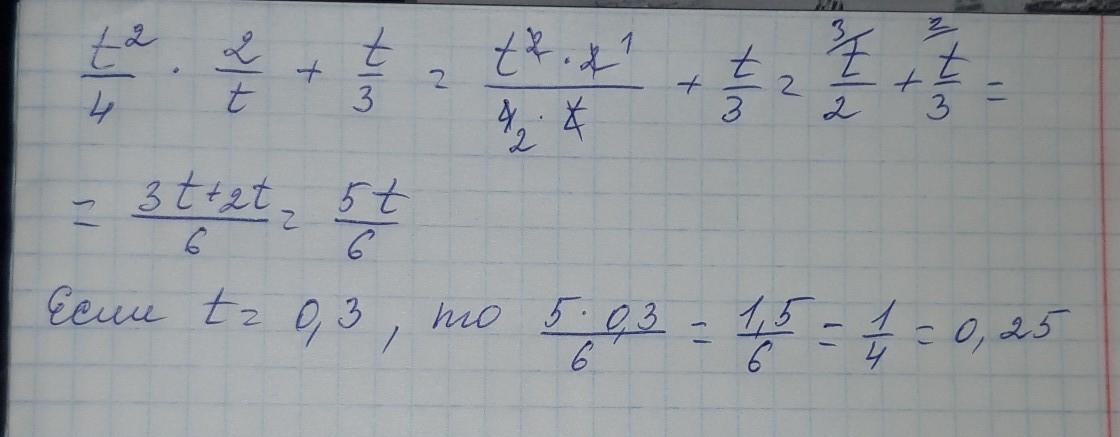 t²/4 · 2/t + t/3 = t² · 2 1 / 4 2 · t + t/3 = 3/ t/2 + 2/ t/3 =
= 3t+2t/6 = 5t/6
Если t = 0,3 , то 5 · 0,3/6 = 1,5/6 = 1/4 = 0,25